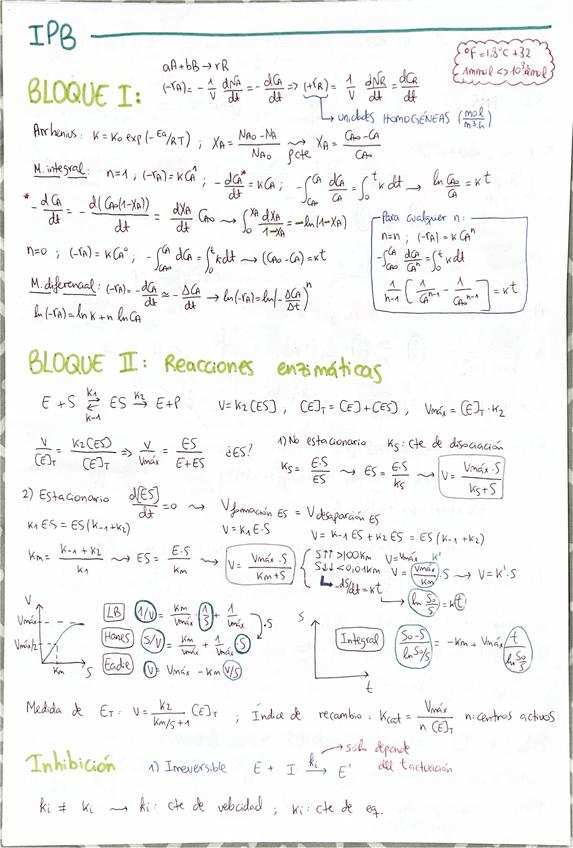 IPB
ºF = 1,8ºC + 32
1mmol <> 10³ kmol
aA + bB → rR
BLOQUE I:
(-rA) = - 1/V dNA/dt = - dCA/dt ⇒ (+rR) = 1/V dNR/dt = dCR/dt
unidades HOMOGÉNEAS (mol/m³·h)
Arrhenius: K = K₀ exp(-Ea/RT) ; XA = (NA₀ - NA)/NA₀ ⇝ ρcte XA = (CA₀ - CA)/CA₀
M. integral: n=1, (-rA) = KCA¹ ; - dCA*/dt = KCA ; -∫CA₀^CA dCA/CA = ∫₀^t K dt → ln CA₀/CA = Kt
* - dCA/dt = - d(CA₀(1-XA))/dt = dXA/dt CA₀ → ∫₀^XA dXA/(1-XA) = -ln(1-XA)
n=0 ; (-rA) = KCA⁰ ; -∫CA₀^CA dCA = ∫₀^t K dt → (CA₀ - CA) = Kt
Para cualquier n:
n=n ; (-rA) = KCAⁿ
-∫CA₀^CA dCA/CAⁿ = ∫₀^t K dt
1/(n-1) [1/CAⁿ⁻¹ - 1/CA₀ⁿ⁻¹] = Kt
M. diferencial: (-rA) = - dCA/dt ≃ - ΔCA/Δt → ln(-rA) = ln(-ΔCA/Δt)ⁿ
ln(-rA) = ln K + n ln CA
BLOQUE II: Reacciones enzimáticas
E + S ⇄ ES → E + P K1 K-1 K2 V = K2 [ES] , [E]T = [E] + [ES] , Vmáx = [E]T · K2
V/[E]T = K2[ES]/[E]T ⇒ V/Vmáx = ES/(E+ES) ¿ES?
1) No estacionario Ks: cte de disociación
Ks = E·S/ES ⇝ ES = E·S/Ks ⇝ V = Vmáx·S/(Ks+S)
2) Estacionario d[ES]/dt = 0 ⇝ Vformación ES = Vdesaparición ES
K1 E·S = ES (K-1 + K2) V = K1 E·S V = K-1 ES + K2 ES = ES (K-1 + K2)
Km = (K-1 + K2)/K1 ⇝ ES = E·S/Km ⇝ V = Vmáx·S/(Km+S)
S↑↑ >100Km V = Vmáx K'
S↓↓ <0,01Km V = Vmáx/Km · S → V = K'·S
-dS/dt = Kt → ln S₀/S = Kt
V Vmáx Vmáx/2 Km S
LB 1/V = Km/Vmáx · 1/S + 1/Vmáx
·S
Hanes S/V = Km/Vmáx + 1/Vmáx S
Eadie V = Vmáx - Km V/S
S t
Integral (S₀-S)/ln S₀/S = -Km + Vmáx t/ln S₀/S
Medida de ET: V = K2/(Km/S+1) [E]T ; Índice de recambio: Kcat = Vmáx/(n [E]T) n: centros activos
Inhibición 1) Irreversible E + I →ki E'
sólo depende del t actuación
ki ≠ Ki ⇝ ki: cte de velocidad ; Ki: cte de eq.